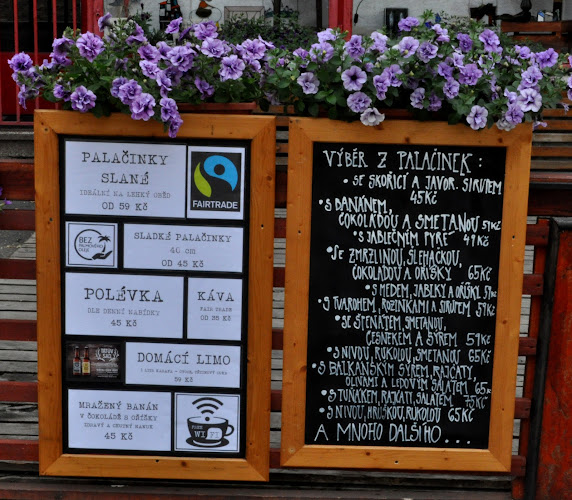 PALAČINKY
SLANÉ
IDEÁLNÍ NA LEHKÝ OBĚD
OD 59 KČ
FAIRTRADE
BEZ
PALMOVÉHO
OLEJE
SLADKÉ PALAČINKY
40 cm
OD 45 KČ
POLÉVKA
DLE DENNÍ NABÍDKY
45 KČ
KÁVA
FAIR TRADE
OD 35 KČ
DOMÁCÍ LIMO
59 KČ
MRAŽENÝ BANÁN
V ČOKOLÁDĚ S OŘÍŠKY
ZDRAVÝ A CHUTNÝ NANUK
45 KČ
FREE
WI FI
VÝBĚR Z PALAČINEK :
• SE SKOŘICÍ A JAVOR. SIRUTEM
45KČ
• S BANÁNEM,
ČOKOLÁDOU A SMETANOU 59KČ
• S JABLEČNÝM PYRÉ 49KČ
• SE ZMRZLINOU, ŠLEHAČKOU,
ČOKOLÁDOU A OŘÍŠKY 65KČ
• S MEDEM, JABLKY A OŘÍŠKY 59KČ
• S TVAROHEM, ROZINKAMI A SIRUTEM 59KČ
• SE ŠPENÁTEM, SMETANOU,
ČESNEKEM A SÝREM 59KČ
• S NIVOU, RUKOLOU, SMETANOU 65KČ
• S BALKÁNSKÝM SÝREM, RAJČATY,
OLIVAMI A LEDOVÝM SALÁTEM 65KČ
• S TUŇÁKEM, RAJČATY, SALÁTEM 75KČ
• S NIVOU, HRUŠKOU, RUKOLOU 65KČ
A MNOHO DALŠÍHO...